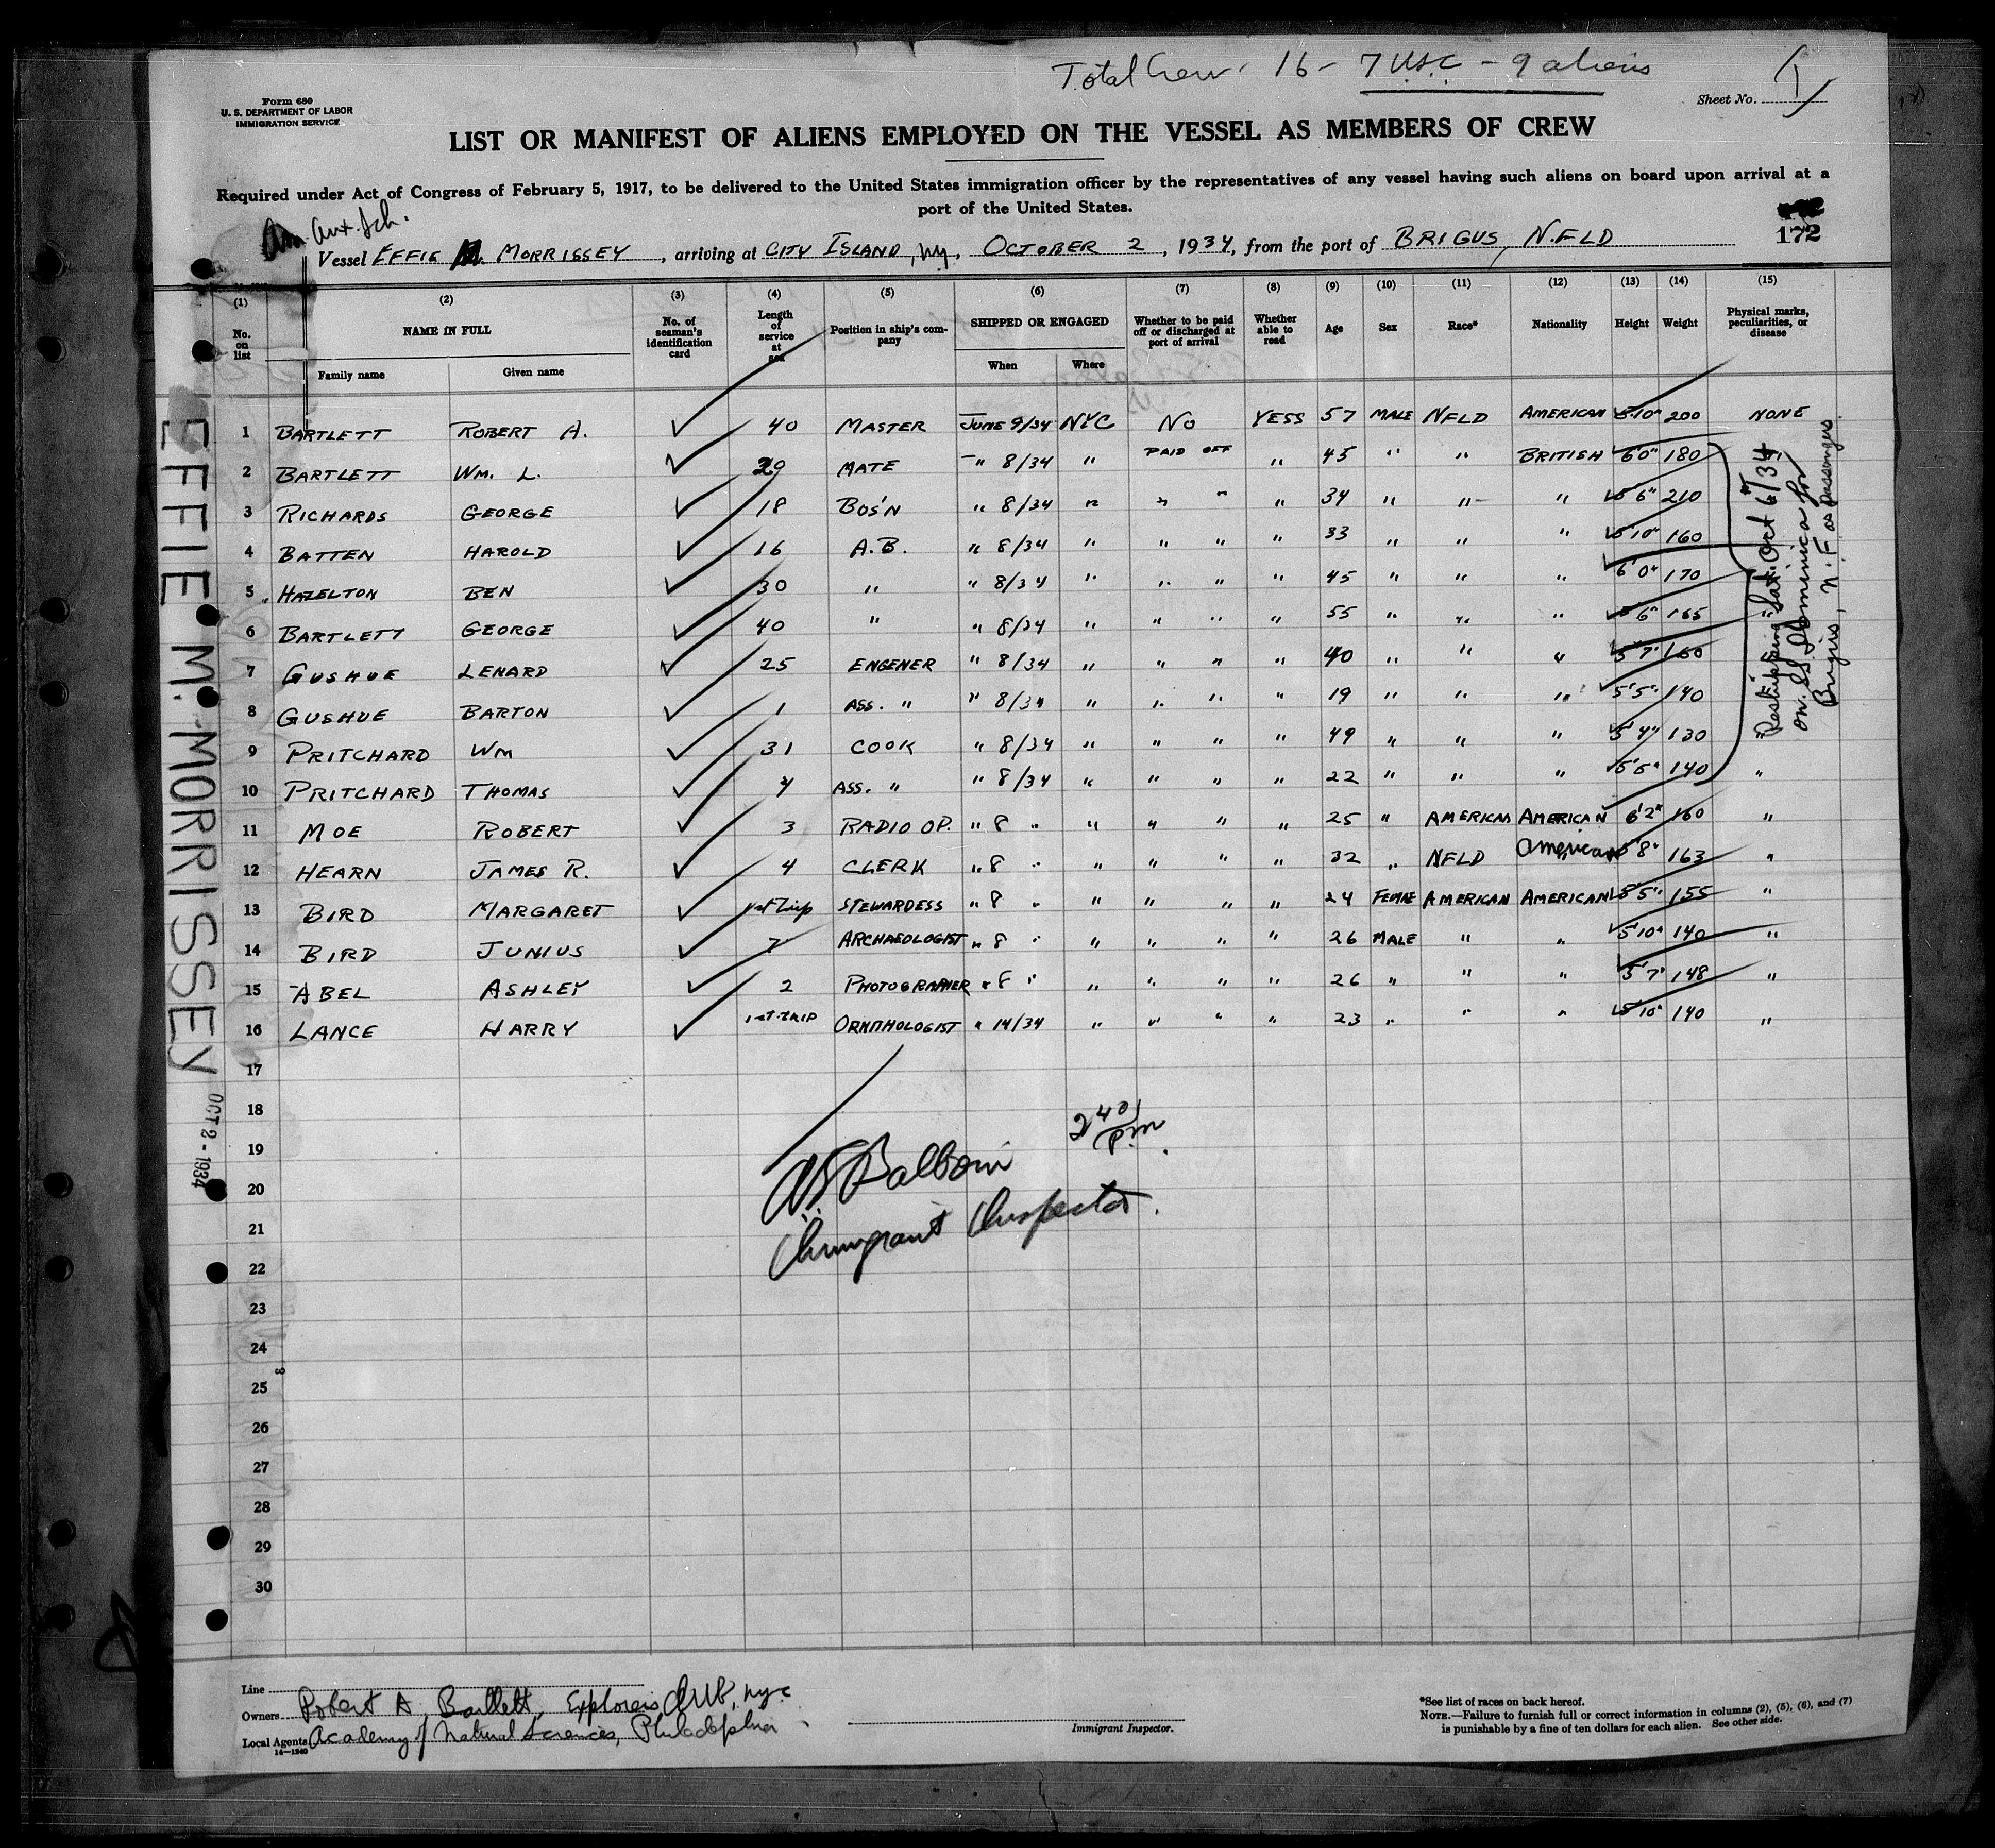 Total Crew. 16 - 7 USC - 9 aliens
Form 680
U. S. DEPARTMENT OF LABOR
IMMIGRATION SERVICE
Sheet No. 1
LIST OR MANIFEST OF ALIENS EMPLOYED ON THE VESSEL AS MEMBERS OF CREW
Required under Act of Congress of February 5, 1917, to be delivered to the United States immigration officer by the representatives of any vessel having such aliens on board upon arrival at a
port of the United States.
172
Am. Aux. Sch.
Vessel EFFIE M. MORRISSEY, arriving at CITY ISLAND, NY, OCTOBER 2, 1934, from the port of BRIGUS, N.FLD
(1) (2) (3) (4) (5) (6) (7) (8) (9) (10) (11) (12) (13) (14) (15)
No. on list NAME IN FULL No. of seaman's identification card Length of service at sea Position in ship's company SHIPPED OR ENGAGED Whether to be paid off or discharged at port of arrival Whether able to read Age Sex Race* Nationality Height Weight Physical marks, peculiarities, or disease
Family name Given name When Where
1 BARTLETT ROBERT A. ✓ 40 MASTER JUNE 9/34 NYC NO YESS 57 MALE NFLD AMERICAN 5'10" 200 NONE
2 BARTLETT WM. L. ✓ 29 MATE " 8/34 " PAID OFF " 45 " " BRITISH 6'0" 180
3 RICHARDS GEORGE ✓ 18 BOS'N " 8/34 " " " " 34 " " " 5'6" 210
4 BATTEN HAROLD ✓ 16 A.B. " 8/34 " " " " 33 " " " 5'10" 160
5 HAZELTON BEN ✓ 30 " " 8/34 " " " " 45 " " " 6'0" 170
6 BARTLETT GEORGE ✓ 40 " " 8/34 " " " " 55 " " " 5'6" 165 "
7 GUSHUE LENARD ✓ 25 ENGENER " 8/34 " " " " 40 " " " 5'7" 160 "
8 GUSHUE BARTON ✓ 1 ASS. " " 8/34 " " " " 19 " " " 5'5" 140
9 PRITCHARD WM ✓ 31 COOK " 8/34 " " " " 49 " " " 5'4" 130 "
10 PRITCHARD THOMAS ✓ 4 ASS. " " 8/34 " " " " 22 " " " 5'5" 140 "
11 MOE ROBERT ✓ 3 RADIO OP. " 8 " " " " " 25 " AMERICAN AMERICAN 6'2" 160 "
12 HEARN JAMES R. ✓ 4 CLERK " 8 " " " " " 32 " NFLD American 5'8" 163 "
13 BIRD MARGARET ✓ 1st Trip STEWARDESS " 8 " " " " " 24 FEMALE AMERICAN AMERICAN 5'5" 155 "
14 BIRD JUNIUS ✓ 7 ARCHAEOLOGIST " 8 " " " " " 26 MALE " " 5'10" 140 "
15 ABEL ASHLEY ✓ 2 PHOTOGRAPHER " 8 " " " " " 26 " " " 5'7" 148 "
16 LANCE HARRY ✓ 1st TRIP ORNITHOLOGIST " 14/34 " " " " 23 " " " 5'10" 140 "
17
18
19
20
21
22
23
24
25
26
27
28
29
30
Reshipping Sat. Oct 6/34
on SS Dominica for
Brigus, N.F as passengers
EFFIE M. MORRISSEY OCT 2 - 1934
2 40 P.M.
Immigrant Inspector.
Line
Owners Robert A. Bartlett, Explorers Club, NYC
Local Agents Academy of Natural Sciences, Philadelphia
14—1240
Immigrant Inspector.
*See list of races on back hereof.
NOTE.—Failure to furnish full or correct information in columns (2), (5), (6), and (7)
is punishable by a fine of ten dollars for each alien. See other side.